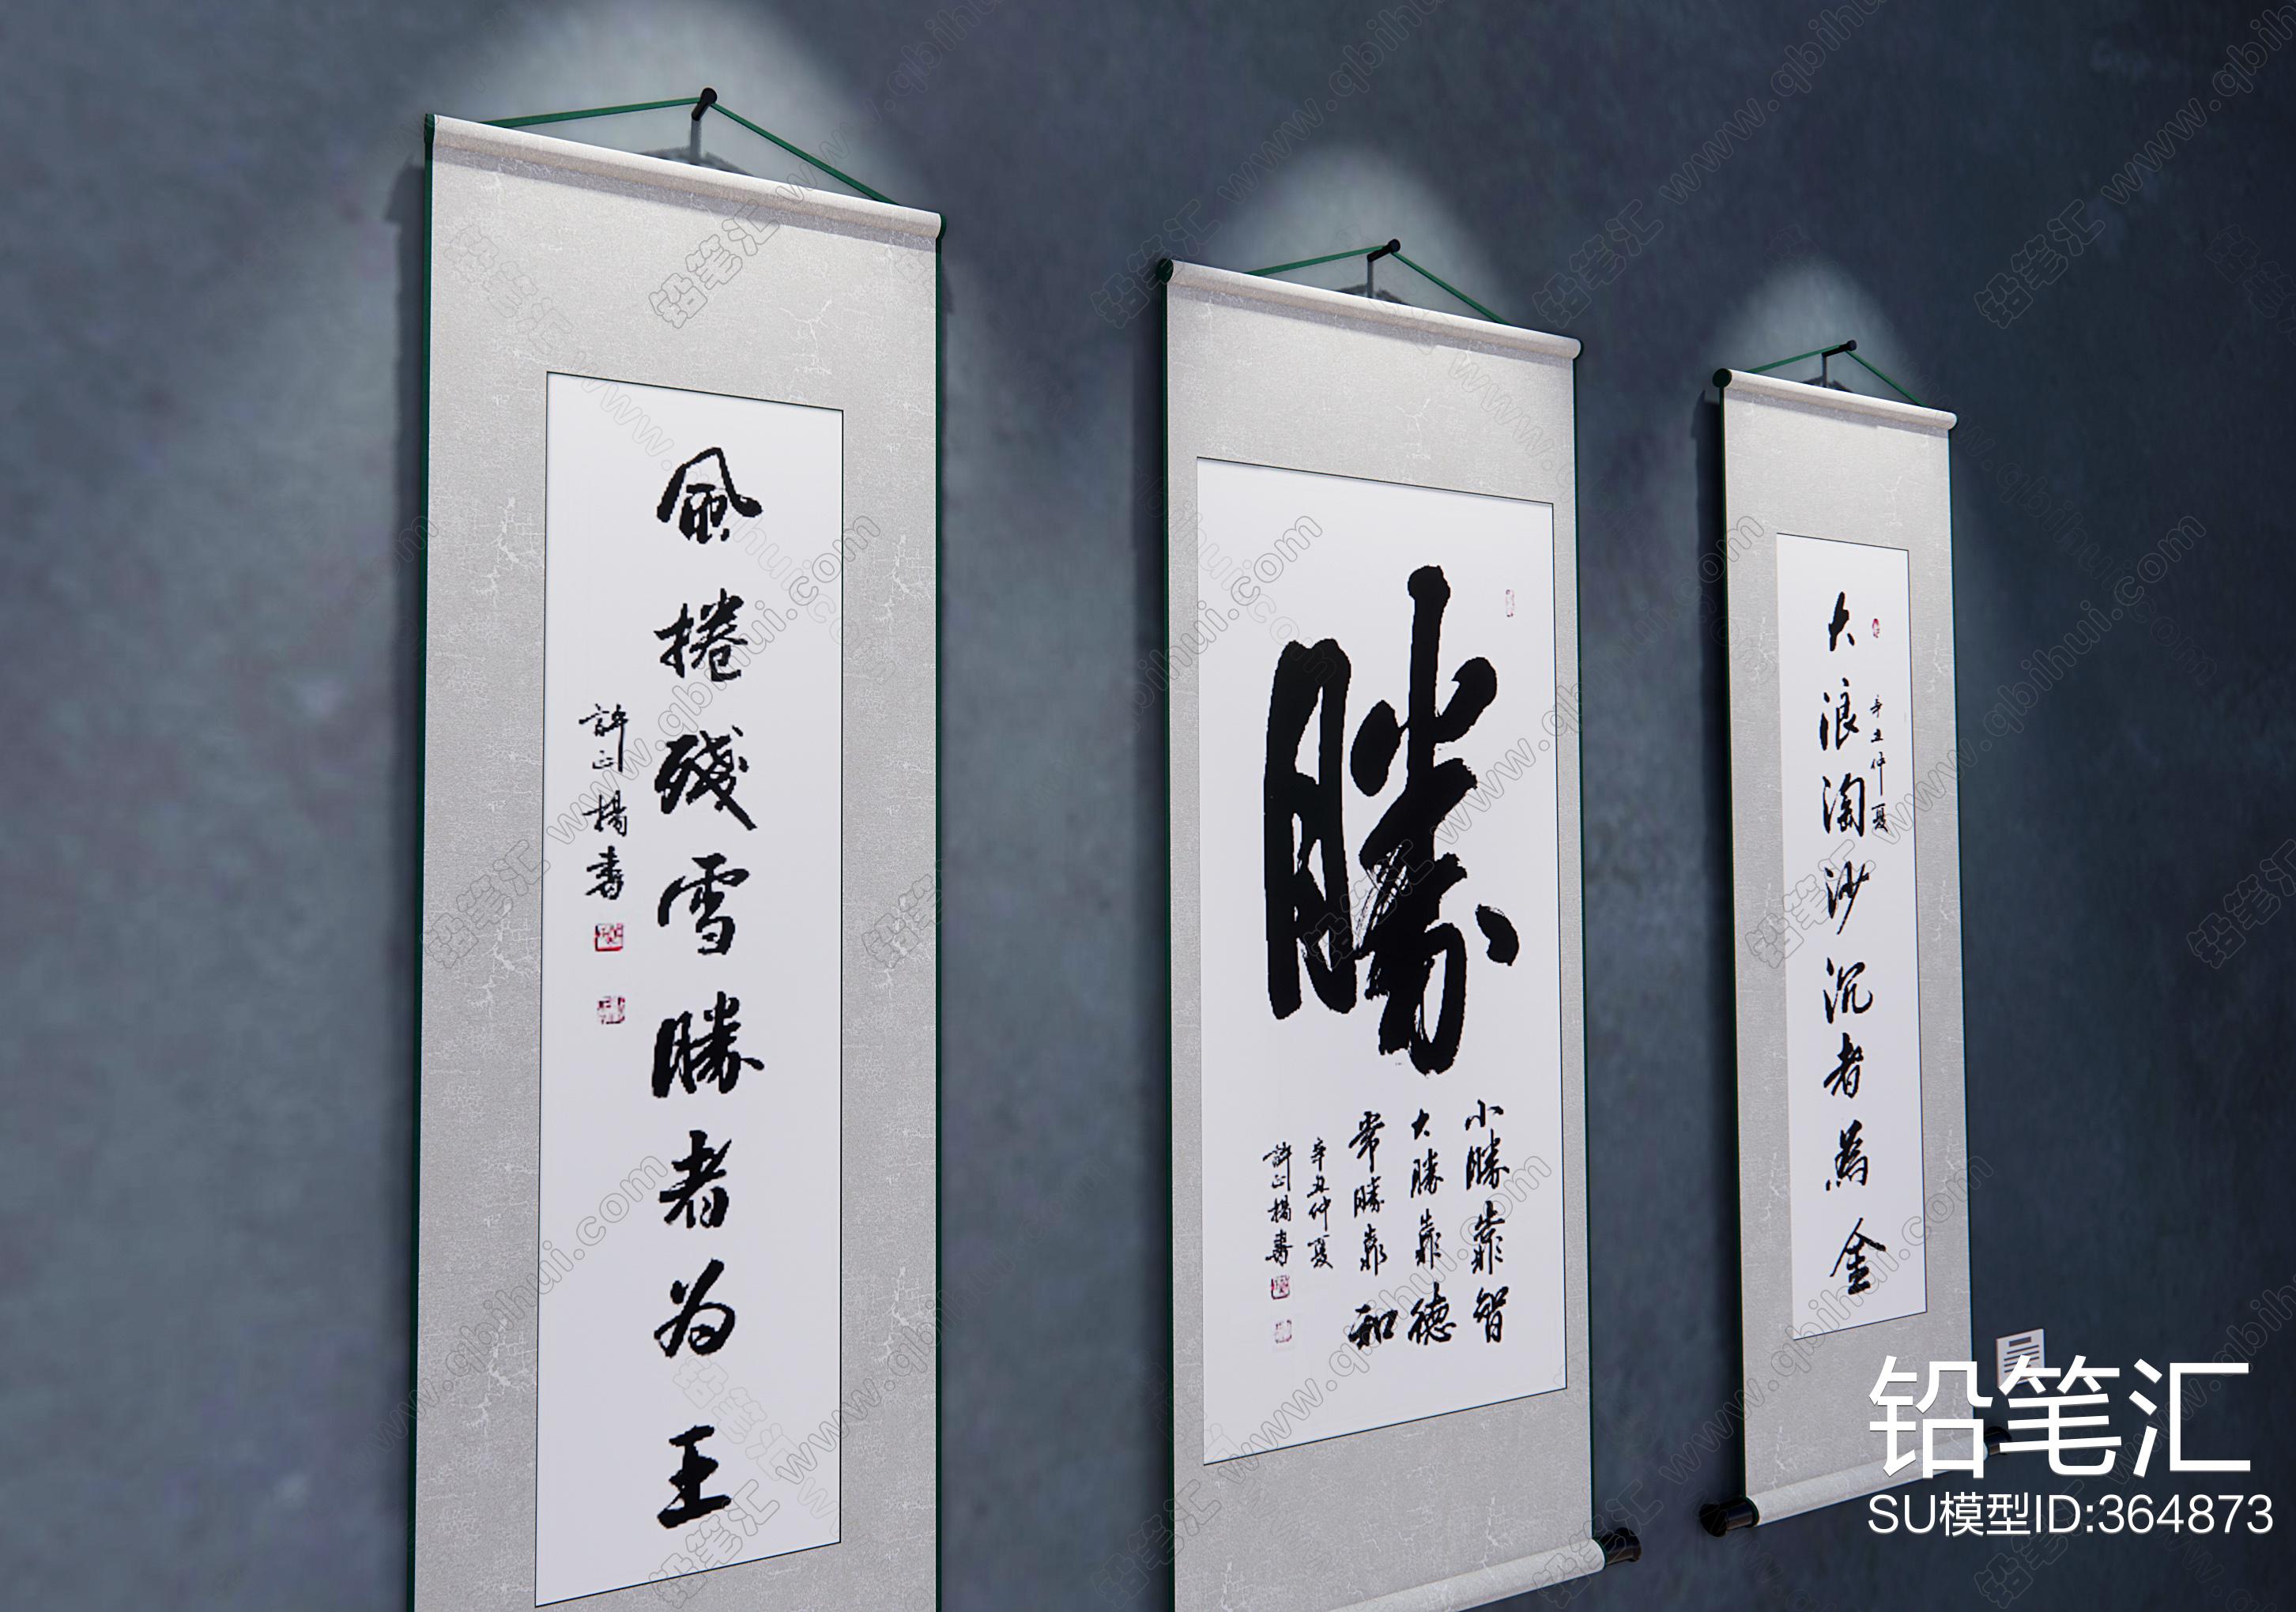 風捲殘雪勝者为王
許正楊書
勝
小勝靠智
大勝靠德
常勝靠和
辛丑仲夏
許正楊書
辛丑仲夏
大浪淘沙沉者為金
铅笔汇
SU模型ID:364873
铅笔汇 www.qbihui.com